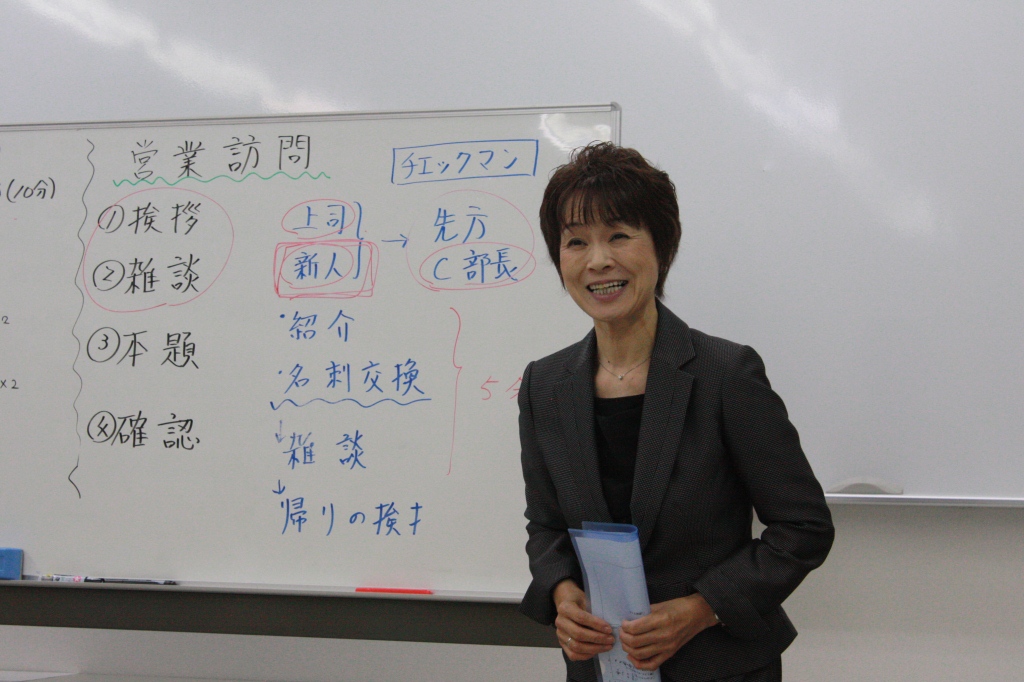 (10分)
営業訪問
①挨拶
②雑談
③本題
④確認
チェックマン
上司 → 先方
新人 C部長
・紹介
・名刺交換
↓雑談
↓帰りの挨
5
2
×2